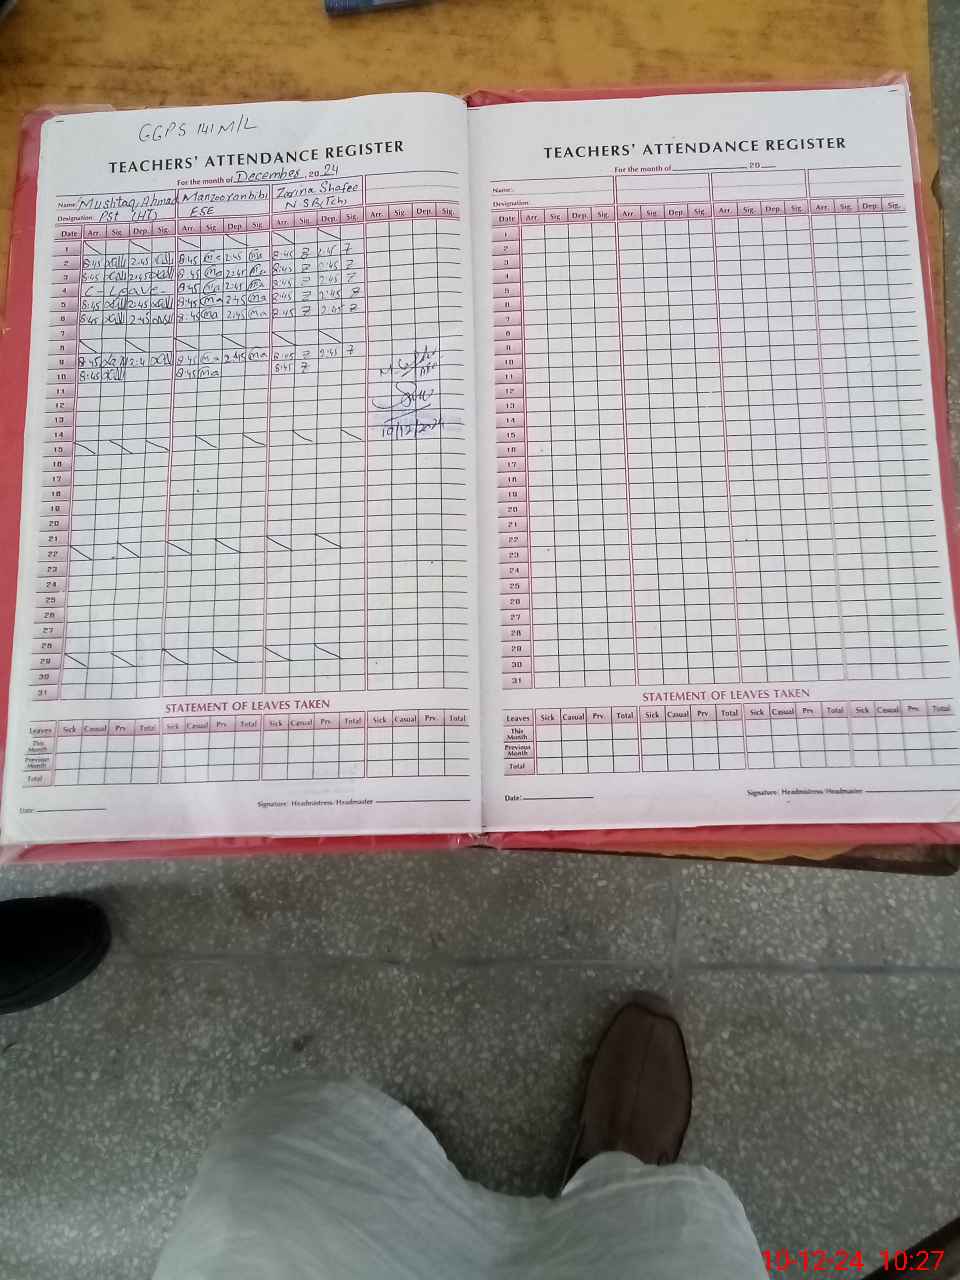 GGPS 141 M/L
TEACHERS' ATTENDANCE REGISTER
For the month of December, 2024
Name: Mushtaq Ahmad Manzooranbibi Zarina Shafee
Designation: PST (HT) ESE
Date Arr. Sig. Dep. Sig. Arr. Sig. Dep. Sig. Arr. Sig. Dep. Sig. Arr. Sig. Dep. Sig.
1
2 8:45 2:45 8:45 ma 2:45 ma 8:45 Z 2:45 Z
3 8:45 2:45 8:45 ma 2:45 ma 8:45 Z 2:45 Z
4 C-Leave- 8:45 ma 2:45 ma 8:45 Z 2:45 Z
5 8:45 2:45 8:45 ma 2:45 ma 8:45 Z 2:45 Z
6 8:45 2:45 8:45 ma 2:45 ma 8:45 Z 2:45 Z
7
8
9 8:45 8:45 ma 2:45 ma 8:45 Z 2:45 Z
10 8:45 8:45 ma 8:45 Z
11
12
13
10/12/2024
14
15
16
17
18
19
20
21
22
23
24
25
26
27
28
29
30
31
STATEMENT OF LEAVES TAKEN
Leaves Sick Casual Prv. Total Sick Casual Prv. Total Sick Casual Prv. Total Sick Casual Prv. Total
This Month
Previous Month
Total
Date: Signature: Headmistress/Headmaster
TEACHERS' ATTENDANCE REGISTER
For the month of 20
Name:
Designation:
Date Arr. Sig. Dep. Sig. Arr. Sig. Dep. Sig. Arr. Sig. Dep. Sig. Arr. Sig. Dep. Sig.
1
2
3
4
5
6
7
8
9
10
11
12
13
14
15
16
17
18
19
20
21
22
23
24
25
26
27
28
29
30
31
STATEMENT OF LEAVES TAKEN
Leaves Sick Casual Prv. Total Sick Casual Prv. Total Sick Casual Prv. Total Sick Casual Prv. Total
This Month
Previous Month
Total
Date: Signature: Headmistress/Headmaster
10-12-24 10:27